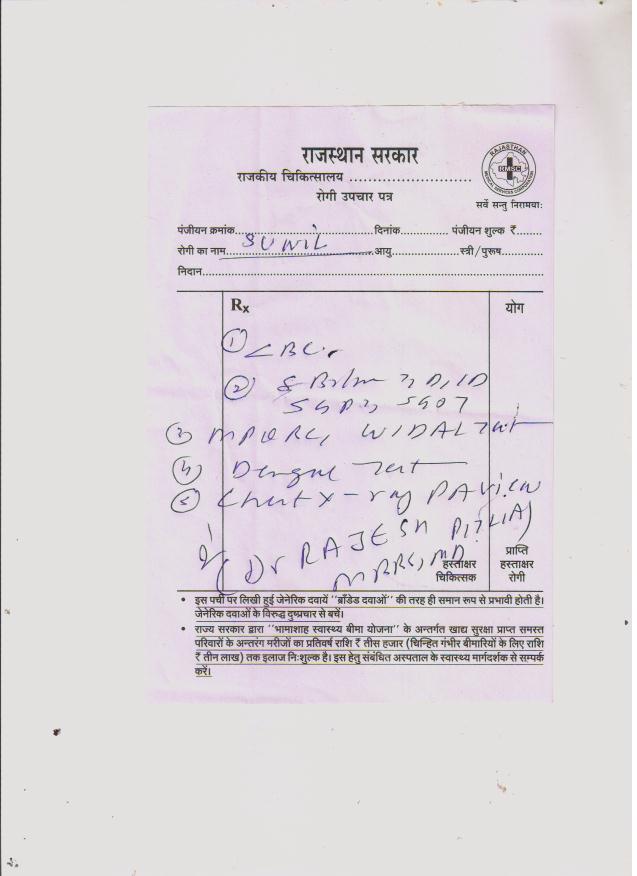 राजस्थान सरकार
RAJASTHAN
RMSC
MEDICAL SERVICES CORPORATION
राजकीय चिकित्सालय ...........................
रोगी उपचार पत्र
सर्वे सन्तु निरामयाः
पंजीयन क्रमांक.................................दिनांक............ पंजीयन शुल्क ₹.......
रोगी का नाम SUNIL आयु.................स्त्री/पुरूष...........
निदान...........................................................
Rx योग
① CBC
② S Bilm T, D, ID
SGPT, SGOT
③ MPQBC, WIDAL Test
④ Dengue Test
⑤ Chest X-ray PA View
(Dr RAJESH PITLIA)
MBBS, MD
हस्ताक्षर चिकित्सक
प्राप्ति हस्ताक्षर रोगी
• इस पर्ची पर लिखी हुई जेनेरिक दवायें ''ब्राँडेड दवाओं'' की तरह ही समान रूप से प्रभावी होती है।
जेनेरिक दवाओं के विरुद्ध दुष्प्रचार से बचें।
• राज्य सरकार द्वारा ''भामाशाह स्वास्थ्य बीमा योजना'' के अन्तर्गत खाद्य सुरक्षा प्राप्त समस्त
परिवारों के अन्तरंग मरीजों का प्रतिवर्ष राशि ₹ तीस हजार (चिन्हित गंभीर बीमारियों के लिए राशि
₹ तीन लाख) तक इलाज निःशुल्क है। इस हेतु संबंधित अस्पताल के स्वास्थ्य मार्गदर्शक से सम्पर्क
करें।